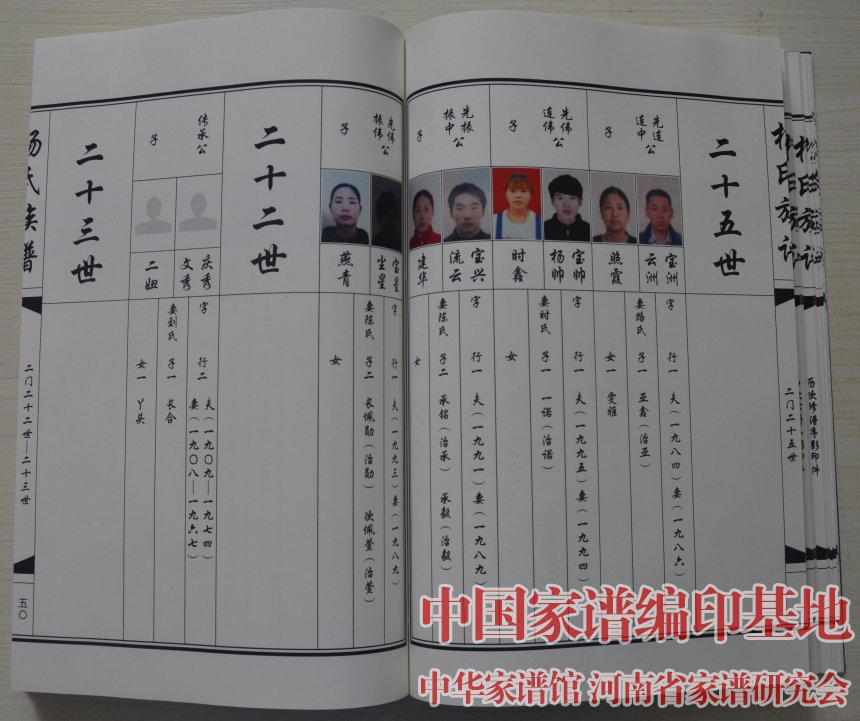 二十五世
先连公
连中
子
宝洲
云洲
照霞
字 行一 夫（一九八四）妻（一九八六）
妻路氏 子一 亚鑫（治亚）
女一 雯雅
先伟公
连伟
子
宝帅
杨帅
时鑫
字 行一 夫（一九九五）妻（一九九四）
妻时氏 子一 一诺（治诺）
女
先振公
振中
子
宝兴
流云
建华
字 行一 夫（一九九一）妻（一九八九）
妻陈氏 子二 承铭（治承） 承毅（治毅）
女
先伟公
振伟
子
宝星
尘星
燕青
字 行一 夫（一九九三）妻（一九八九）
妻陈氏 子二 长佩勋（治勋） 次佩萱（治萱）
女
二十二世
传承公
子
庆秀
文秀
二妞
字 行二 夫（一九〇九—一九七四）
妻（一九〇八—一九六七）
妻刘氏 子一 长合
女一 丫头
二十三世
杨氏族谱
二门二十二世—二十三世
五〇
二门二十五世
历次修谱手影印件
中国家谱编印基地
中华家谱馆 河南省家谱研究会